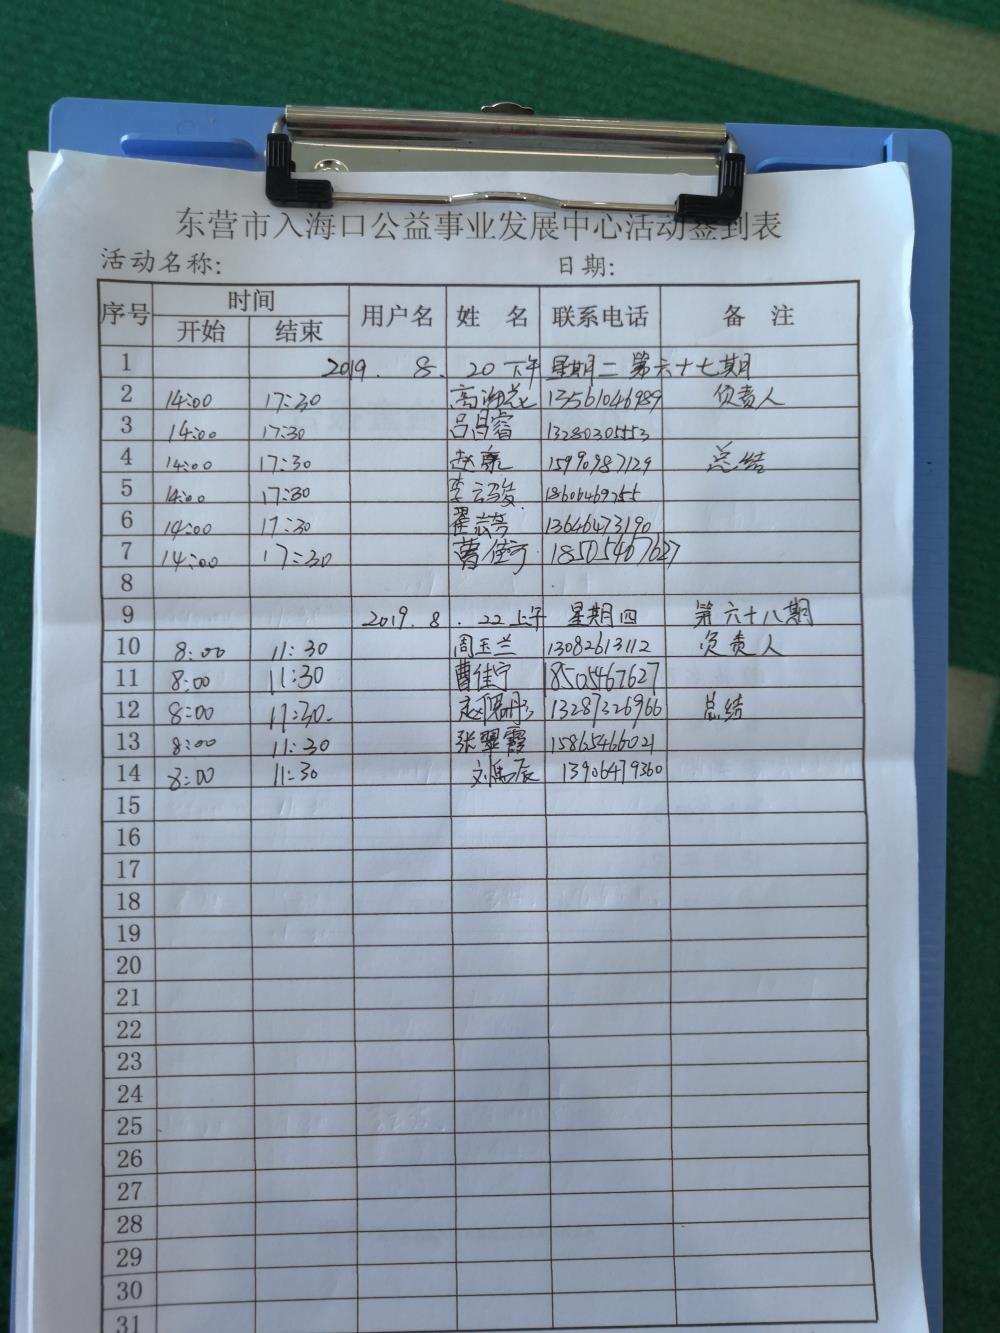 东营市入海口公益事业发展中心活动签到表
活动名称: 日期:
序号 时间 用户名 姓 名 联系电话 备 注
开始 结束
1 2019. 8. 20下午 星期二 第六十七期
2 14:00 17:30 高 13561046989 负责人
3 14:00 17:30 吕昌睿 13280305553
4 14:00 17:30 赵康 15990987129 总结
5 14:00 17:30 李云骏 18606469755
6 14:00 17:30 翟芸芳 13646473190
7 14:00 17:30 曹佳宁 18505467627
8
9 2019. 8. 22上午 星期四 第六十八期
10 8:00 11:30 周玉兰 13082613112 负责人
11 8:00 11:30 曹佳宁 18505467627
12 8:00 11:30. 赵 13287326966 总结
13 8:00 11:30 张翠霞 15865466021
14 8:00 11:30 刘禹辰 13906479360
15
16
17
18
19
20
21
22
23
24
25
26
27
28
29
30
31